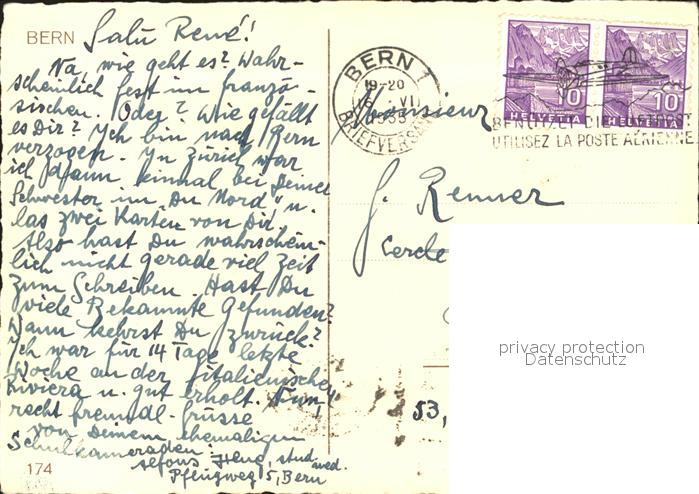 BERN
Salü René!
Na, wie geht es? Wahr-
scheinlich fest im franzö-
sischen. Oder? Wie gefällt
es Dir? Ich bin nach Bern
verzogen. In Zürich war
ich dann einmal bei Deiner
Schwester im "Du Nord" u.
las zwei Karten von Dir.
Also hast Du wahrschein-
lich nicht gerade viel Zeit
zum Schreiben. Hast Du
viele Bekannte gefunden?
Wann kehrst Du zurück?
Ich war für 14 Tage letzte
Woche an der italienischen
Riviera u. gut erholt. Nun,
recht freundl. grüsse
von Deinem ehemaligen
Schulkameraden:
Alfons stud. med.
Pflugweg 5, Bern
174
BERN 1
19-20
VI
BRIEFVERSAND
10
HELVETIA
10
HELVETIA
BENÜTZET DIE LUFTPOST
UTILISEZ LA POSTE AÉRIENNE
Monsieur
J. Renner
Cercle
53,
privacy protection
Datenschutz